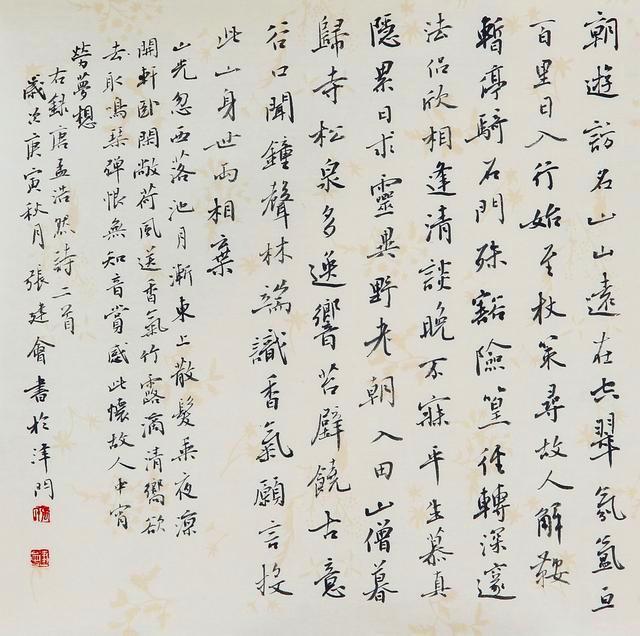 朝遊訪名山山遠在空翠氛氳亘
百里日入行始至杖策尋故人解鞍
暫亭騎石門殊豁險篁徑轉深邃
法侶欣相逢清談晚不寐平生慕真
隱累日求靈異野老朝入田山僧暮
歸寺松泉多逸響苔壁饒古意
谷口聞鐘聲林端識香氣願言投
此山身世兩相棄
山光忽西落池月漸東上散髮乘夜涼
開軒卧閑敞荷風送香氣竹露滴清響欲
去取鳴琴彈恨無知音賞感此懷故人中宵
勞夢想
右錄唐孟浩然詩二首
歲次庚寅秋月張建會書於津門